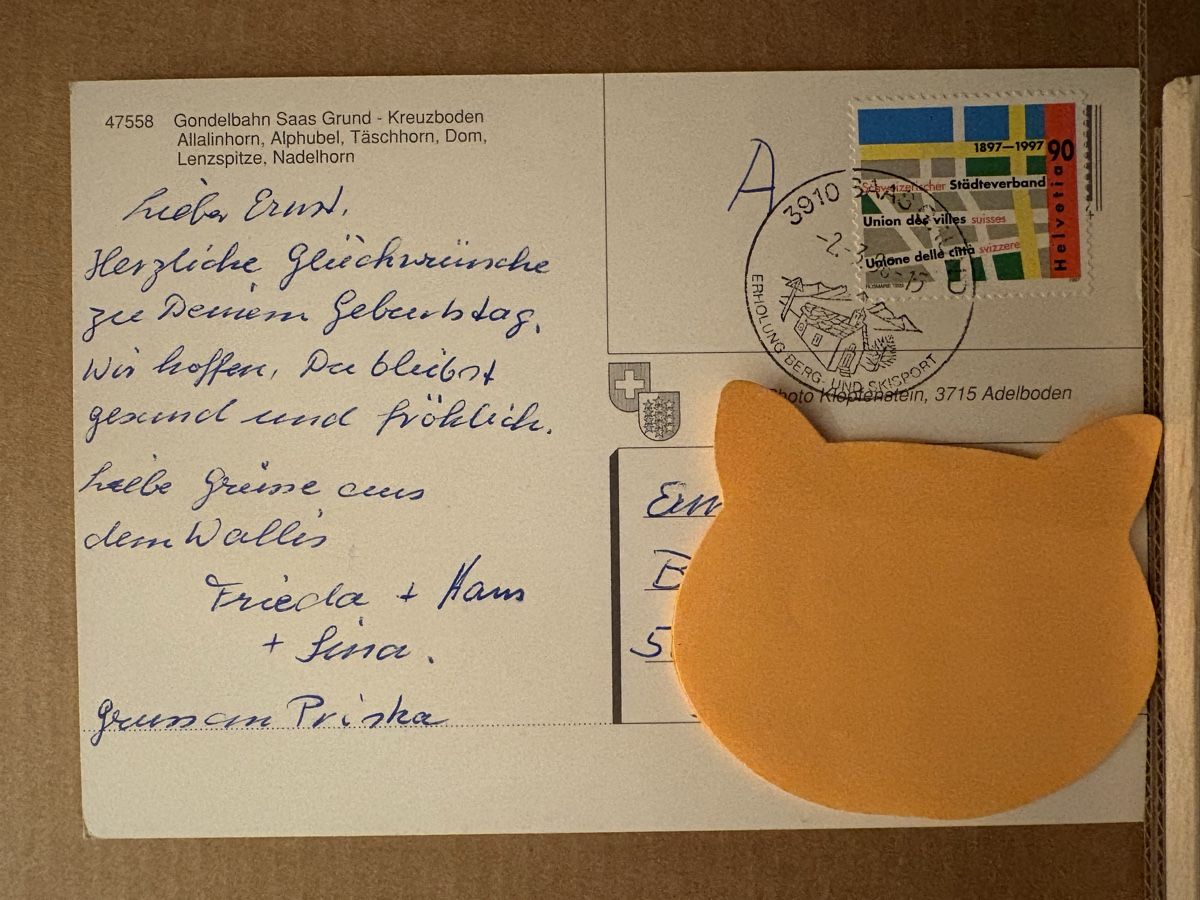 47558 Gondelbahn Saas Grund - Kreuzboden
Allalinhorn, Alphubel, Täschhorn, Dom,
Lenzspitze, Nadelhorn
Lieber Ernst,
Herzliche Glückwünsche
zu Deinem Geburtstag.
Wir hoffen, Du bleibst
gesund und fröhlich.
Liebe Grüsse aus
dem Wallis
Frieda + Hans
+ Sina.
Gruss an Priska
A
1897–1997 90
Schweizerischer Städteverband
Union des villes suisses
Unione delle città svizzere
Helvetia
3910 SAAS GRUND
-2.-3.
ERHOLUNG BERG- UND SKISPORT
Photo Klopfenstein, 3715 Adelboden